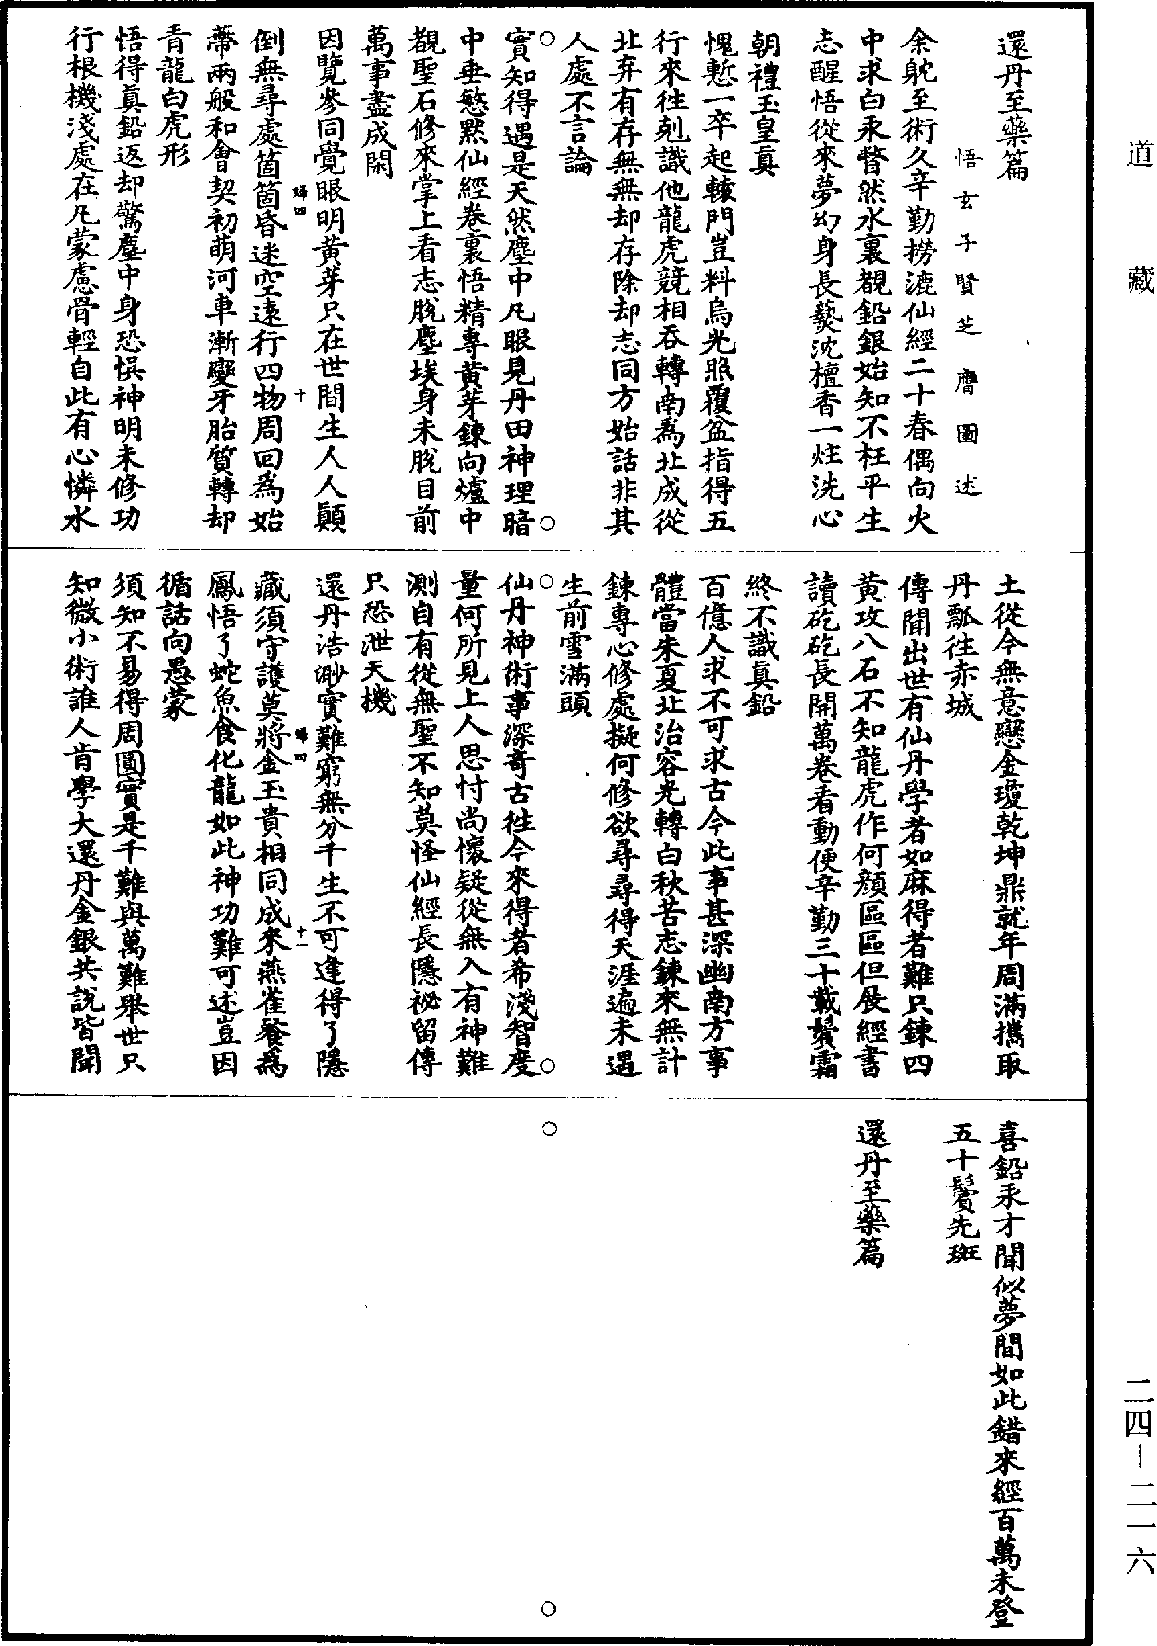 道藏
還丹至藥篇
悟玄子賢芝膺圖述
余躭至術久辛勤撈漉仙經二十春偶向火
中求白汞瞥然水裏覩鉛銀始知不枉平生
志醒悟從來夢幻身長爇沈檀香一炷洗心
朝禮玉皇真
愧慙一卒起轅門豈料烏光照覆盆指得五
行來往剋識他龍虎競相吞轉南為北成從
北弃有存無無却存除却志同方始話非其
人處不言論
實知得遇是天然塵中凡眼見丹田神理暗
中垂慜黙仙經卷裏悟精專黃芽鍊向爐中
覩聖石修來掌上看志脫塵埃身未脫目前
萬事盡成閑
因覽參同覺眼明黃芽只在世間生人人顛
倒無尋處箇箇昏迷空遠行四物周回為始
蔕兩般和會契初萌河車漸變牙胎質轉却
青龍白虎形
悟得真鉛返却驚塵中身恐懼神明未修功
行根機淺處在凡蒙慮骨輕自此有心憐水
土從今無意戀金瓊乾坤鼎就年周滿擕取
丹瓢往赤城
傳聞出世有仙丹學者如麻得者難只鍊四
黃攻八石不知龍虎作何顏區區但飭經書
讀矻矻長開萬卷看動便辛勤三十載鬢霜
終不識真鉛
百億人求不可求古今此事甚深幽南方事
體當朱夏北治容光轉白秋苦志鍊來無計
鍊專心修處擬何修欲尋尋得天涯遍未遇
生前雪滿頭
仙丹神術事深奇古徃今來得者希淺智度
量何所見上人思忖尚懷疑從無入有神難
測自有從無聖不知莫怪仙經長隱祕留傳
只恐泄天機
還丹浩渺實難窮無分千生不可逢得了隱
藏須守護莫將金玉貴相同成來燕雀飱為
鳳悟了蛇魚食化龍如此神功難可述豈因
循話向愚蒙
須知不易得周圓實是千難與萬難舉世只
知微小術誰人肯學大還丹金銀共說皆聞
喜鉛汞才聞似夢間如此錯來經百萬未登
五十鬢先斑
還丹至藥篇
二四－二一六